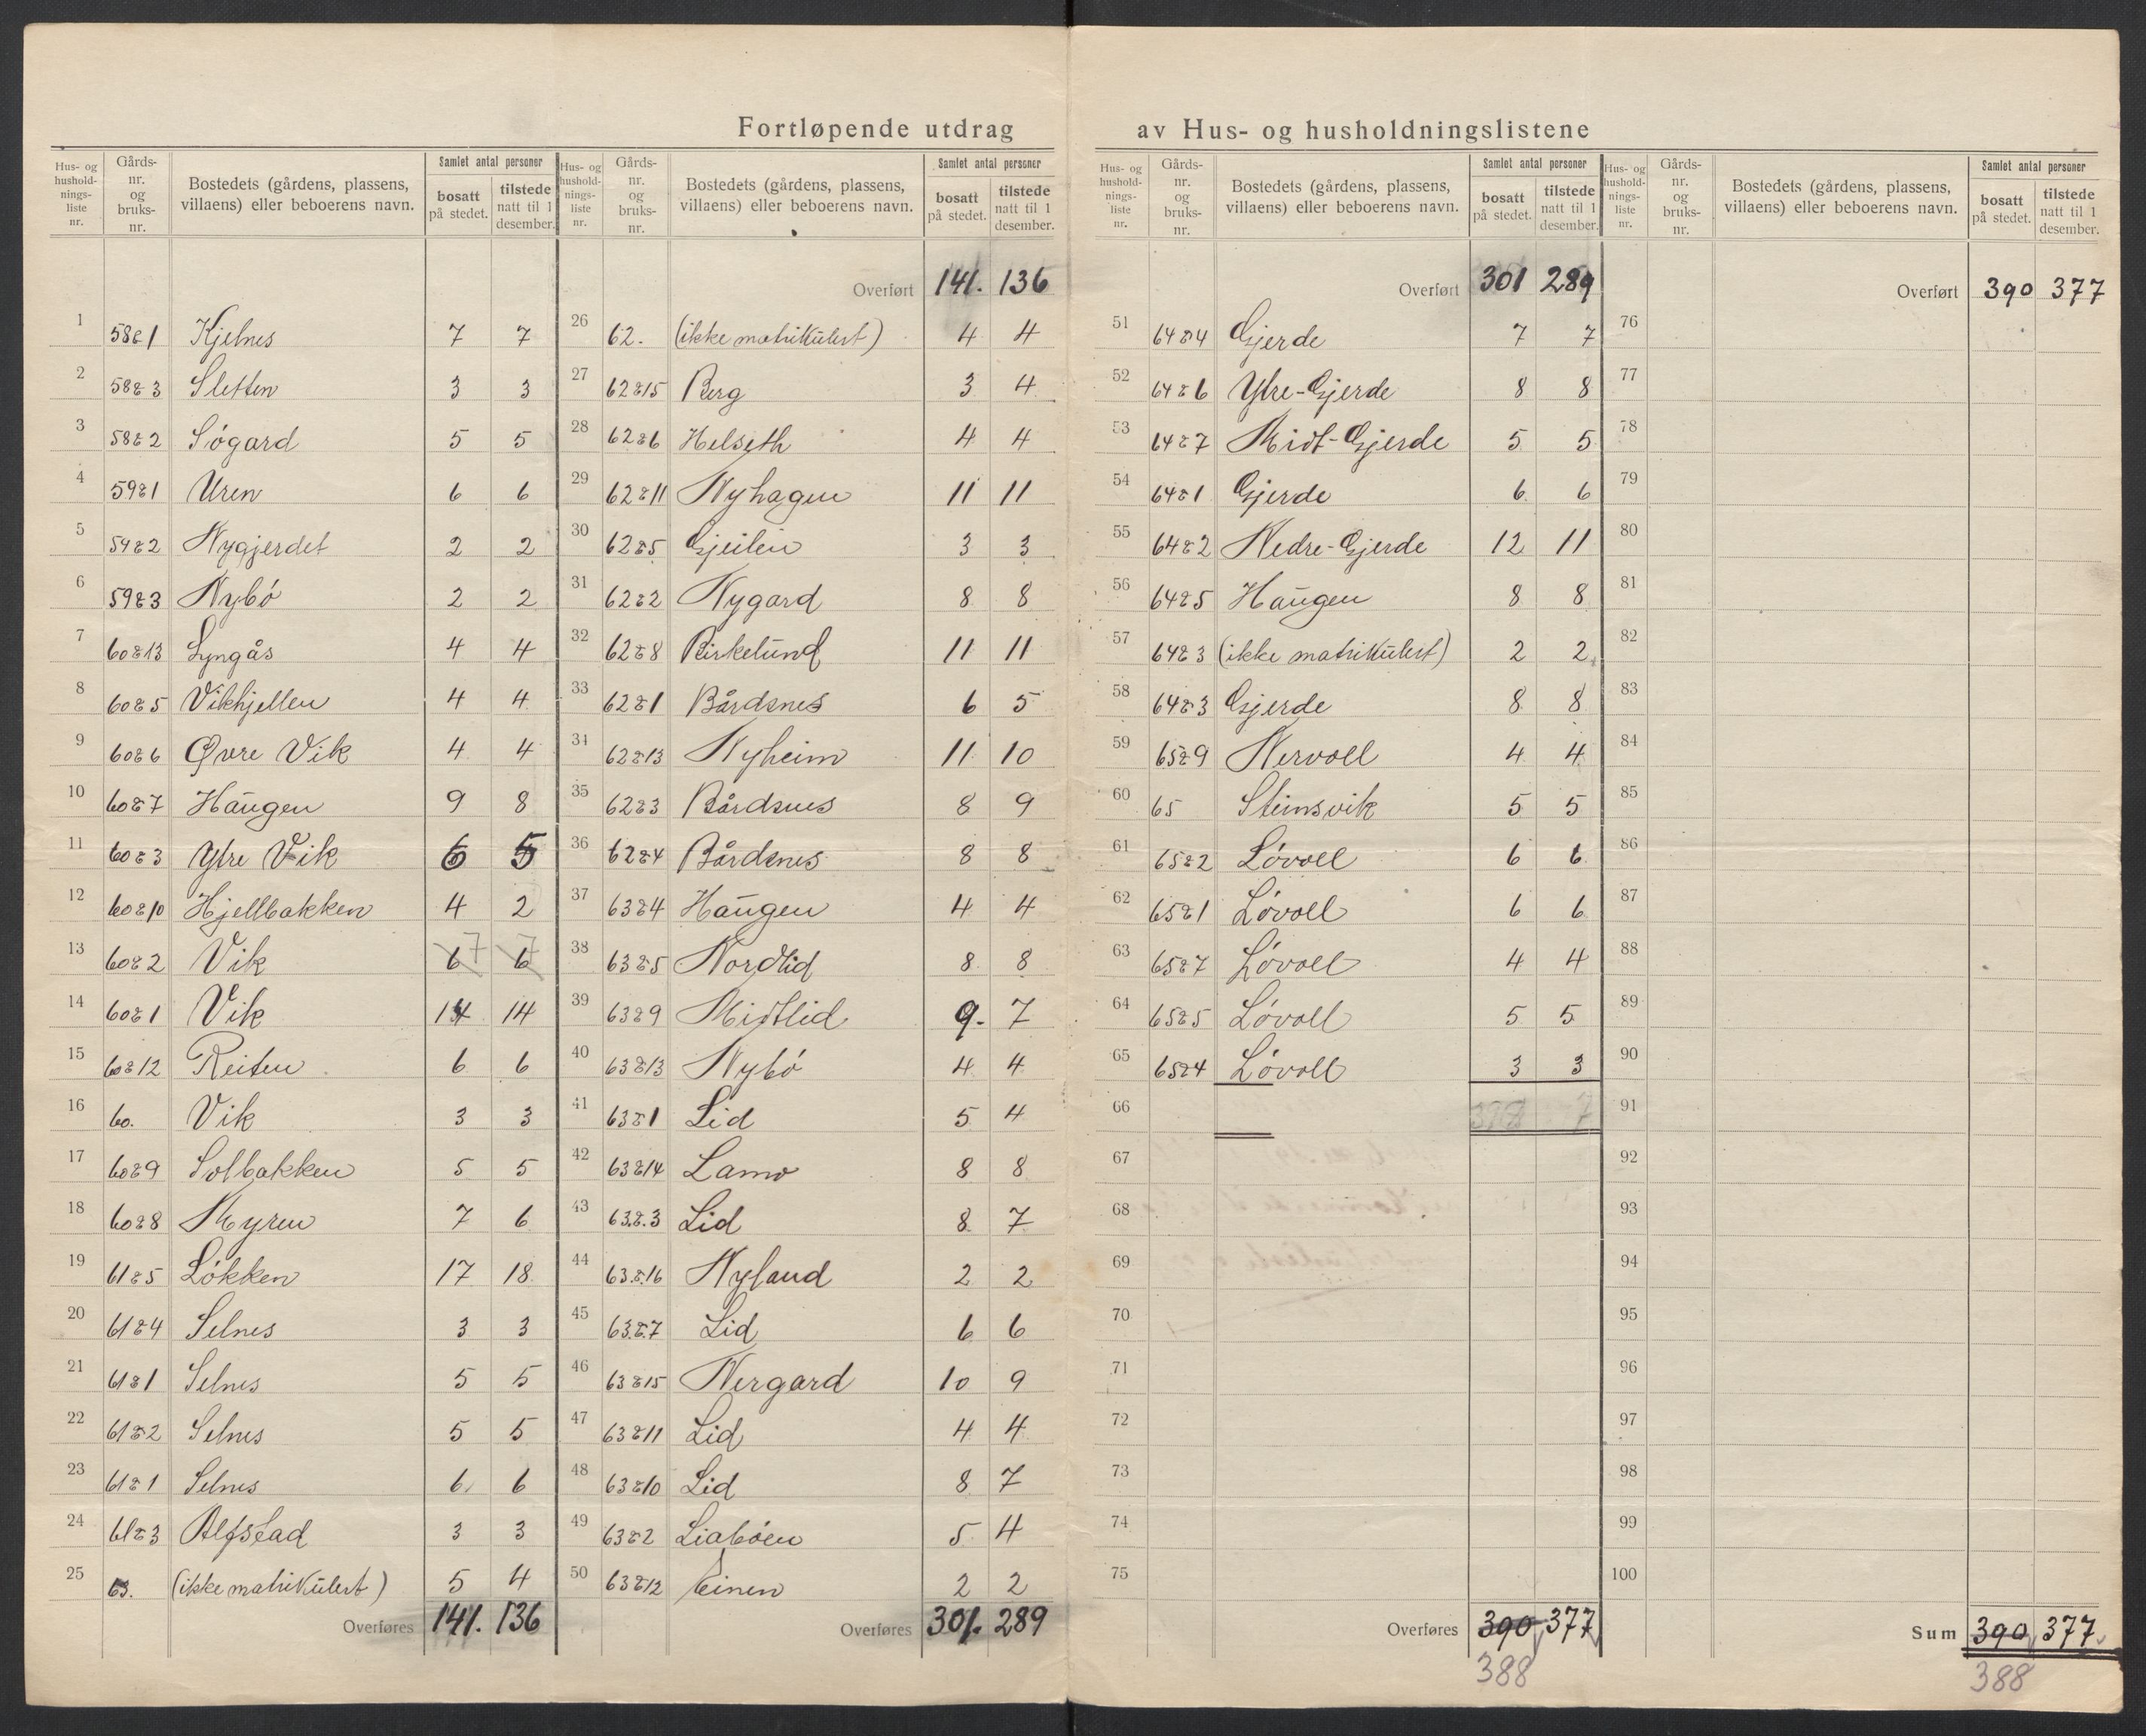 Fortløpende utdrag av Hus- og husholdningslistene
Hus- og hushold-nings-liste nr. Gårds-nr. og bruks-nr. Bostedets (gårdens, plassens, villaens) eller beboerens navn. Samlet antal personer bosatt på stedet. tilstede natt til 1 desember.
1 58&1 Kjelnes 7 7
2 58&3 Sletten 3 3
3 58&2 Søgard 5 5
4 59&1 Uren 6 6
5 59&2 Nygjerdet 2 2
6 59&3 Nybö 2 2
7 60&13 Lyngås 4 4
8 60&5 Vikhjellen 4 4
9 60&6 Øvre Vik 4 4
10 60&7 Haugen 9 8
11 60&3 Ytre Vik 6 5
12 60&10 Hjellbakken 4 2
13 60&2 Vik 6 7 6 7
14 60&1 Vik 14 14
15 60&12 Reiten 6 6
16 60. Vik 3 3
17 60&9 Solbakken 5 5
18 60&8 Myren 7 6
19 61&5 Løkken 17 18
20 61&4 Selnes 3 3
21 61&1 Selnes 5 5
22 61&2 Selnes 5 5
23 61&1 Selnes 6 6
24 61&3 Alfstad 3 3
25 63. (ikke matrikulert) 5 4
Overføres 141. 136
Hus- og hushold-nings-liste nr. Gårds-nr. og bruks-nr. Bostedets (gårdens, plassens, villaens) eller beboerens navn. Samlet antal personer bosatt på stedet. tilstede natt til 1 desember.
Overført 141. 136
26 62. (ikke matrikulert) 4 4
27 62&15 Berg 3 4
28 62&6 Helseth 4 4
29 62&11 Nyhagen 11 11
30 62&5 Gjeilen 3 3
31 62&2 Nygard 8 8
32 62&8 Birkelund 11 11
33 62&1 Bårdsnes 6 5
34 62&13 Nyheim 11 10
35 62&3 Bårdsnes 8 9
36 62&4 Bårdsnes 8 8
37 63&4 Haugen 4 4
38 63&5 Nordlid 8 8
39 63&9 Midtlid 9. 7
40 63&13 Nybö 4 4
41 63&1 Lid 5 4
42 63&14 Lamo 8 8
43 63.&.3 Lid 8 7
44 63.&.16 Nyland 2 2
45 63.&.7 Lid 6 6
46 63&15 Nergard 10 9
47 63&11 Lid 4 4
48 63&10 Lid 8 7
49 63&2 Liabøen 5 4
50 63&12 Einen 2 2
Overføres 301. 289
Hus- og hushold-nings-liste nr. Gårds-nr. og bruks-nr. Bostedets (gårdens, plassens, villaens) eller beboerens navn. Samlet antal personer bosatt på stedet. tilstede natt til 1 desember.
Overført 301 289
51 64&4 Gjerde 7 7
52 64&6 Ytre-Gjerde 8 8
53 64&7 Midt-Gjerde 5 5
54 64&1 Gjerde 6 6
55 64&2 Nedre-Gjerde 12 11
56 64&5 Haugen 8 8
57 64&3 (ikke matrikulert) 2 2
58 64&3 Gjerde 8 8
59 65&9 Nervoll 4 4
60 65 Steinsvik 5 5
61 65&2 Løvoll 6 6
62 65&1 Løvoll 6 6
63 65&7 Løvoll 4 4
64 65&5 Løvoll 5 5
65 65&4 Løvoll 3 3
66
67
68
69
70
71
72
73
74
75
Overføres 390 377
388
Hus- og hushold-nings-liste nr. Gårds-nr. og bruks-nr. Bostedets (gårdens, plassens, villaens) eller beboerens navn. Samlet antal personer bosatt på stedet. tilstede natt til 1 desember.
Overført 390 377
76
77
78
79
80
81
82
83
84
85
86
87
88
89
90
91
92
93
94
95
96
97
98
99
100
Sum 390 377
388